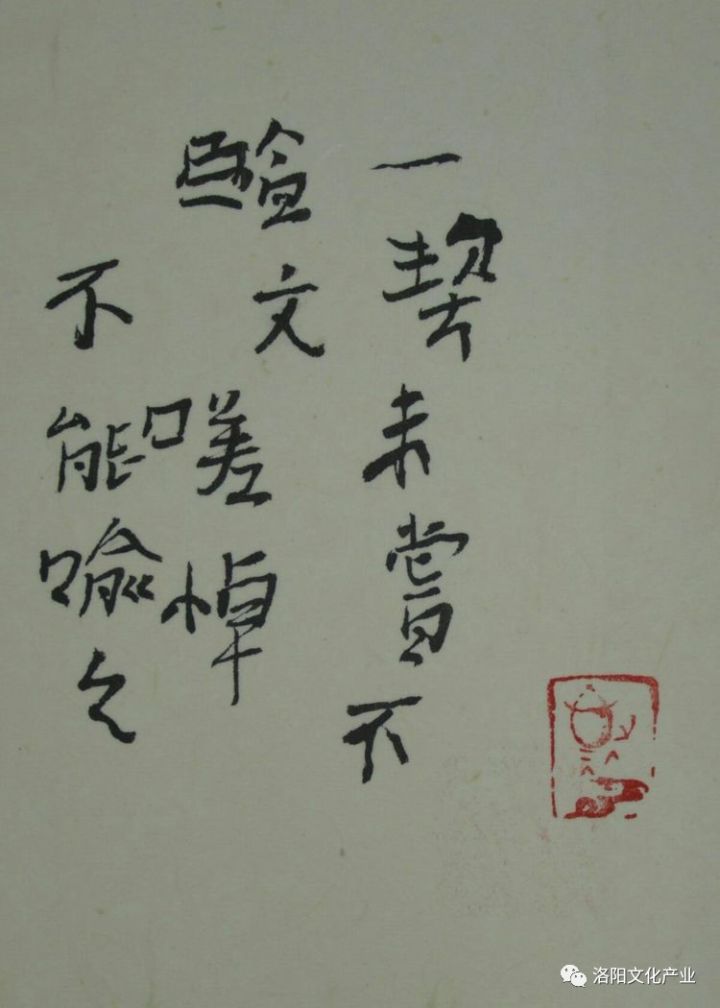 一契未嘗不
臨文嗟悼
不能喻之
洛阳文化产业